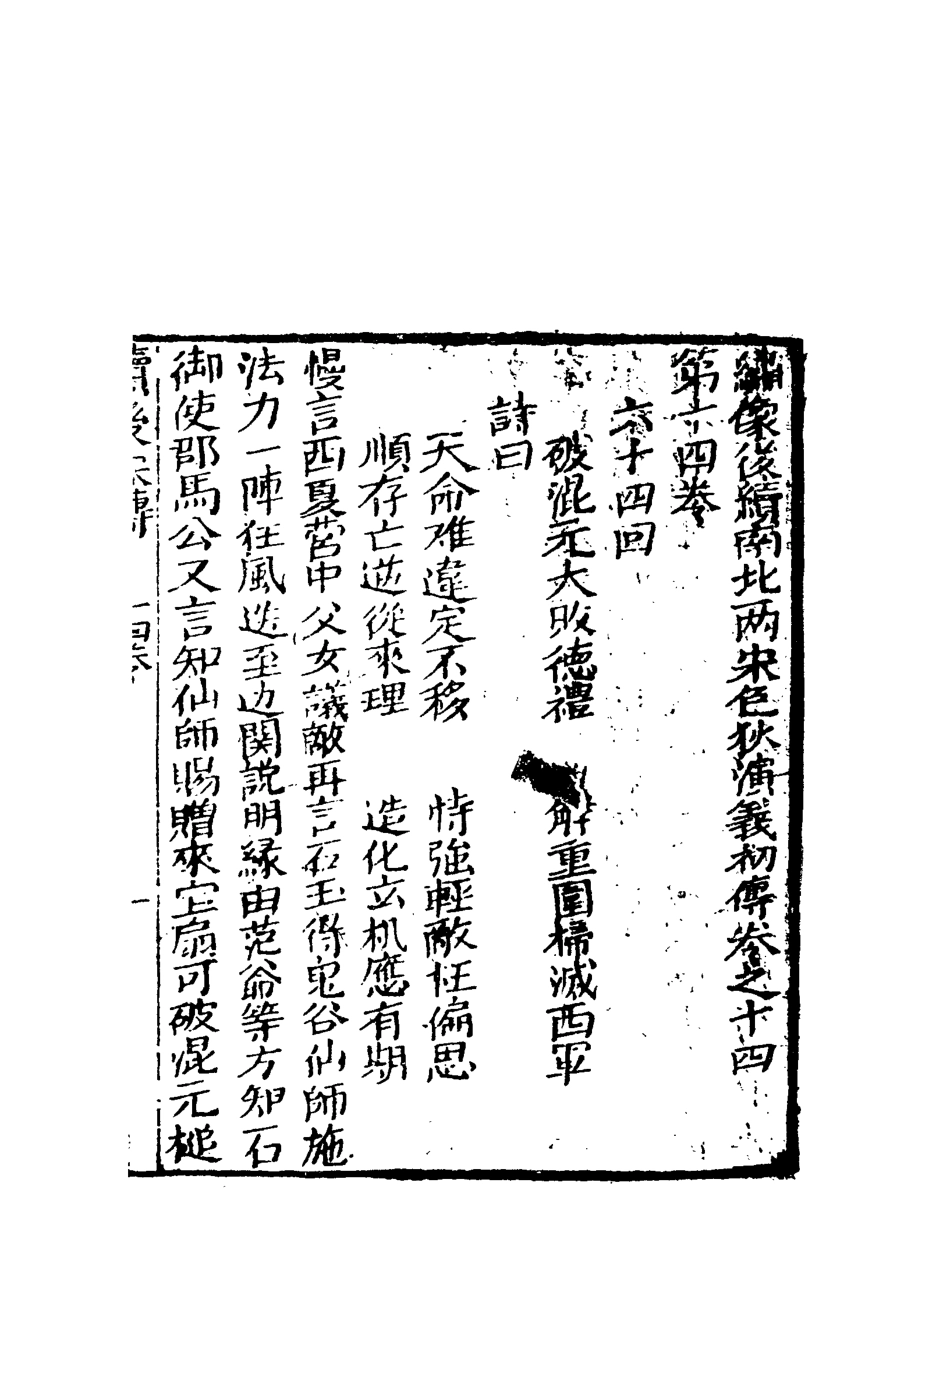 繡像後續南北两宋包狄演義初傳卷之十四
第十四卷
六十四回
破混元大敗德禮　解重圍掃滅西軍
詩曰
天命难違定不移　恃強輕敵枉偏思
順存亡逆從來理　造化玄机應有期
慢言西夏营中父女議敵再言石玉得鬼谷仙師施
法力一陣狂風送至边関說明緣由范爺等方知石
御使郡馬公又言知仙師賜贈來宝扇可破混元槌
續後宋傳　十四卷　一